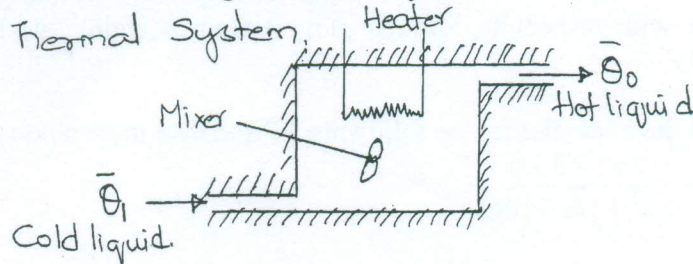 Thermal System,
Heater
θ̄₀
Hot liquid
Mixer
θ̄₁
Cold liquid.